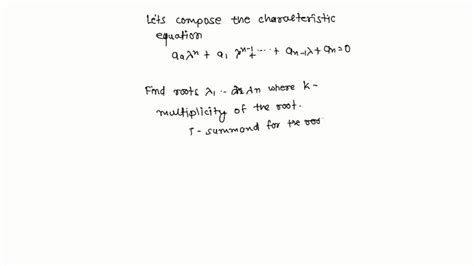 Let's compose the characteristic
equation
a₀λⁿ + a₁ λⁿ⁻¹ + ..... + aₙ₋₁λ + aₙ = 0
Find roots λ₁ .. λn where k -
multiplicity of the root.
r - summond for the root